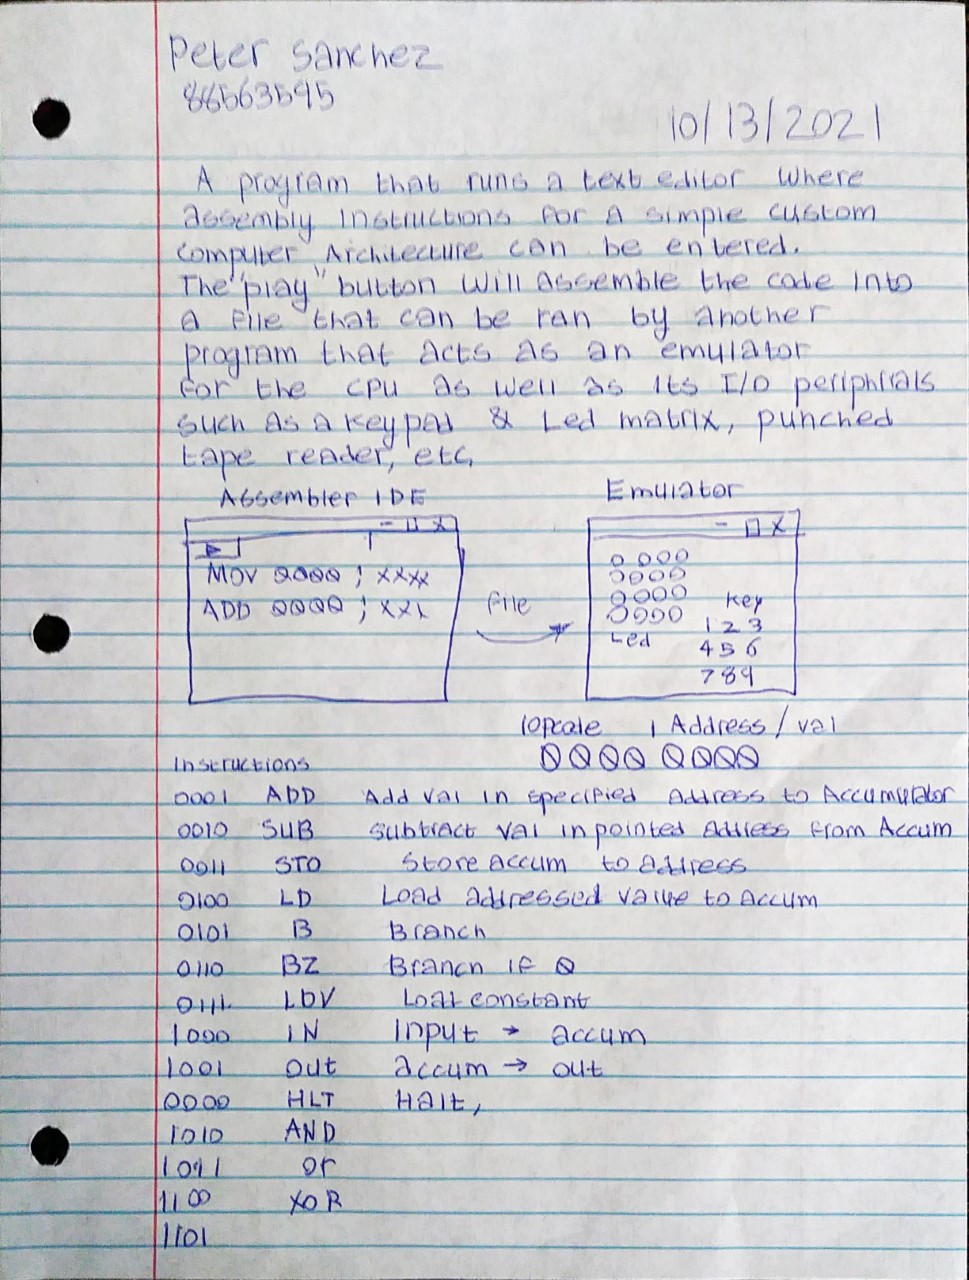 Peter Sanchez
88563595
10/13/2021
A program that runs a text editor where
assembly instructions for a simple custom
computer Architecture can be entered.
The "play" button will assemble the code into
a file that can be ran by another
program that acts as an emulator
for the CPU as well as its I/O periphirals
such as a keypad & Led matrix, punched
tape reader, etc.
Assembler IDE
Emulator
- □ X
- □ X
MOV 0000 ; xxxx
ADD 0000 ; xxx
File
0000
0000
0000
0000
Led
Key
1 2 3
4 5 6
7 8 9
Opcode | Address / val
0000 0000
Instructions
0001 ADD Add val in specified Address to Accumulator
0010 SUB Subtract val in pointed address from Accum
0011 STO Store accum to address
0100 LD Load addressed value to accum
0101 B Branch
0110 BZ Branch if 0
0111 LDV Load constant
1000 IN Input → accum
1001 out accum → out
0000 HLT Halt,
1010 AND
1011 or
1100 XOR
1101